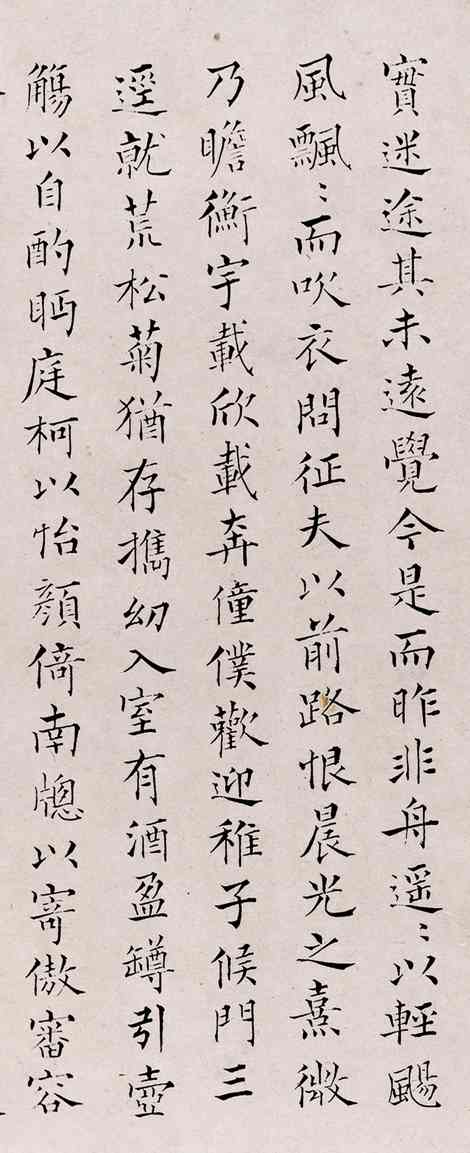 實迷途其未遠覺今是而昨非舟遥〻以輕颺
風飄〻而吹衣問征夫以前路恨晨光之熹微
乃瞻衡宇載欣載奔僮僕歡迎稚子候門三
逕就荒松菊猶存攜幼入室有酒盈罇引壺
觴以自酌眄庭柯以怡顏倚南牕以寄傲審容